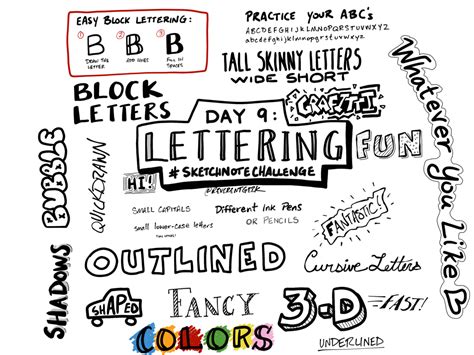 EASY BLOCK LETTERING:
1 2 3
B B B
DRAW THE LETTER
ADD LINES
FILL IN SPACES
PRACTICE YOUR ABC's
ABCDEFGHIJKLMNOPQRSTUVWXYZ
abcdefghijklmnopqrstuvwxyz
TALL SKINNY LETTERS
WIDE SHORT
BLOCK
LETTERS
GRAFFITI
DAY 9:
LETTERING
#SKETCHNOTECHALLENGE
FUN
Whatever You Like
BUBBLE
QUICKDRAWN
HI!
@REVERENTGEEK
SMALL CAPITALS
small lower-case letters
Different Ink Pens
OR PENCILS
FANTASTIC!
SHADOWS
OUTLINED
Cursive Letters
SHAPED
FANCY
3-D
FAST!
COLORS
UNDERLINED